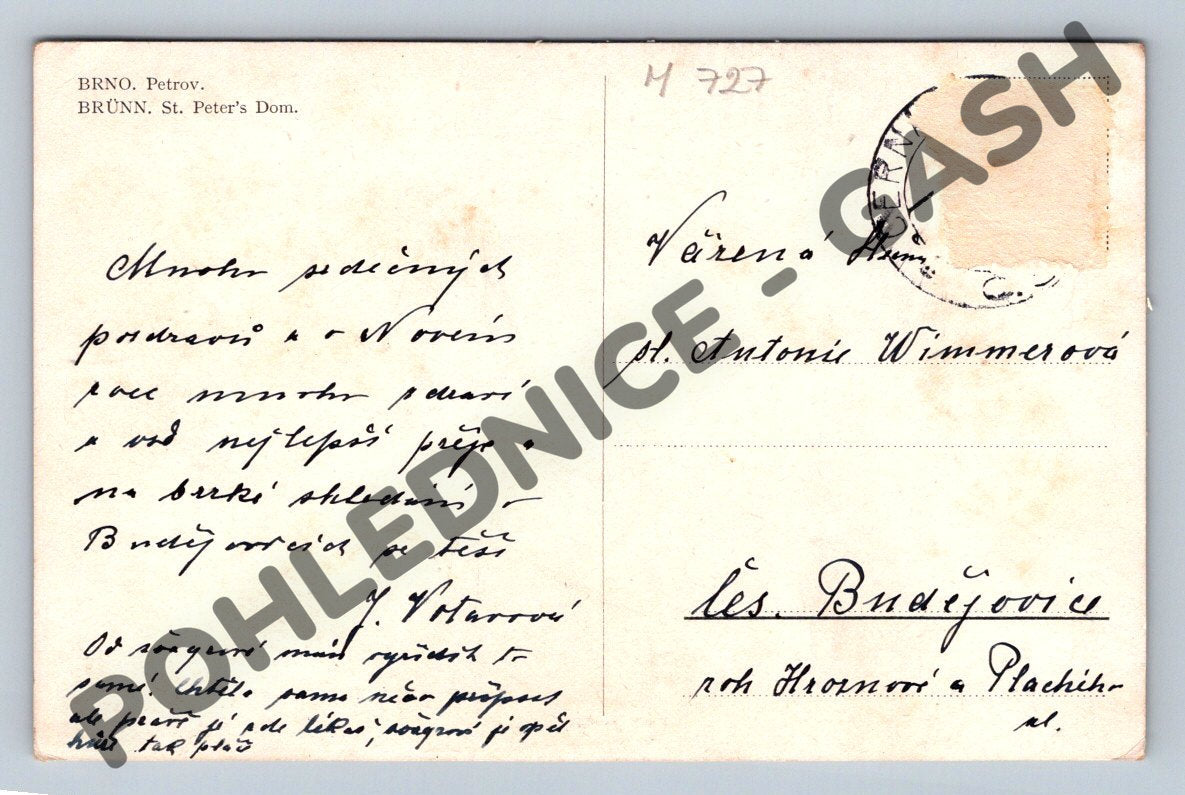 BRNO. Petrov.
BRÜNN. St. Peter's Dom.
M 727
ČERNÁ
Mnoho srdečných
pozdravů a v Novém
roce mnoho zdraví
a vše nejlepší přeje a
na brzké shledání v
Budějovicích se těší
J. Votavová
Od švagrové mám vyřídit to
samé. Chtěla sama něco připsat
ale právě je zde lékař, švagrové je opět
hůře tak pláče
Vážená
sl. Antonie Wimmerová
Čes. Budějovice
roh Hroznové a Plachého
ul.
POHLEDNICE - GASH